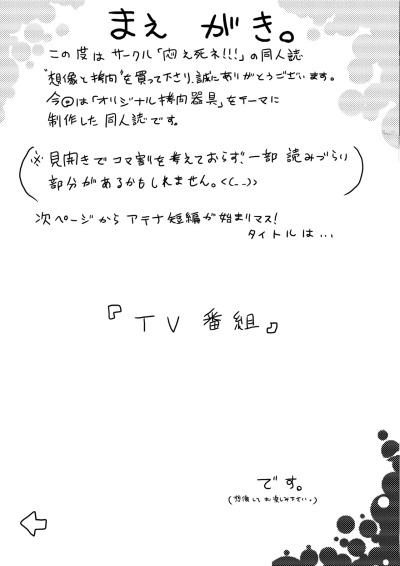 まえがき。
この度はサークル「悶え死ネ!!!」の同人誌
"想像と拷問"を買って下さり、誠にありがとうございます。
今回は「オリジナル拷問器具」をテーマに
制作した同人誌です。
(※見開きでコマ割を考えておらず、一部 読みづらい
部分があるかもしれません。<(_ _)>)
次ページから アテナ短編が始まりマス!
タイトルは...
『TV番組』
です。
(想像してお楽しみ下さい。)